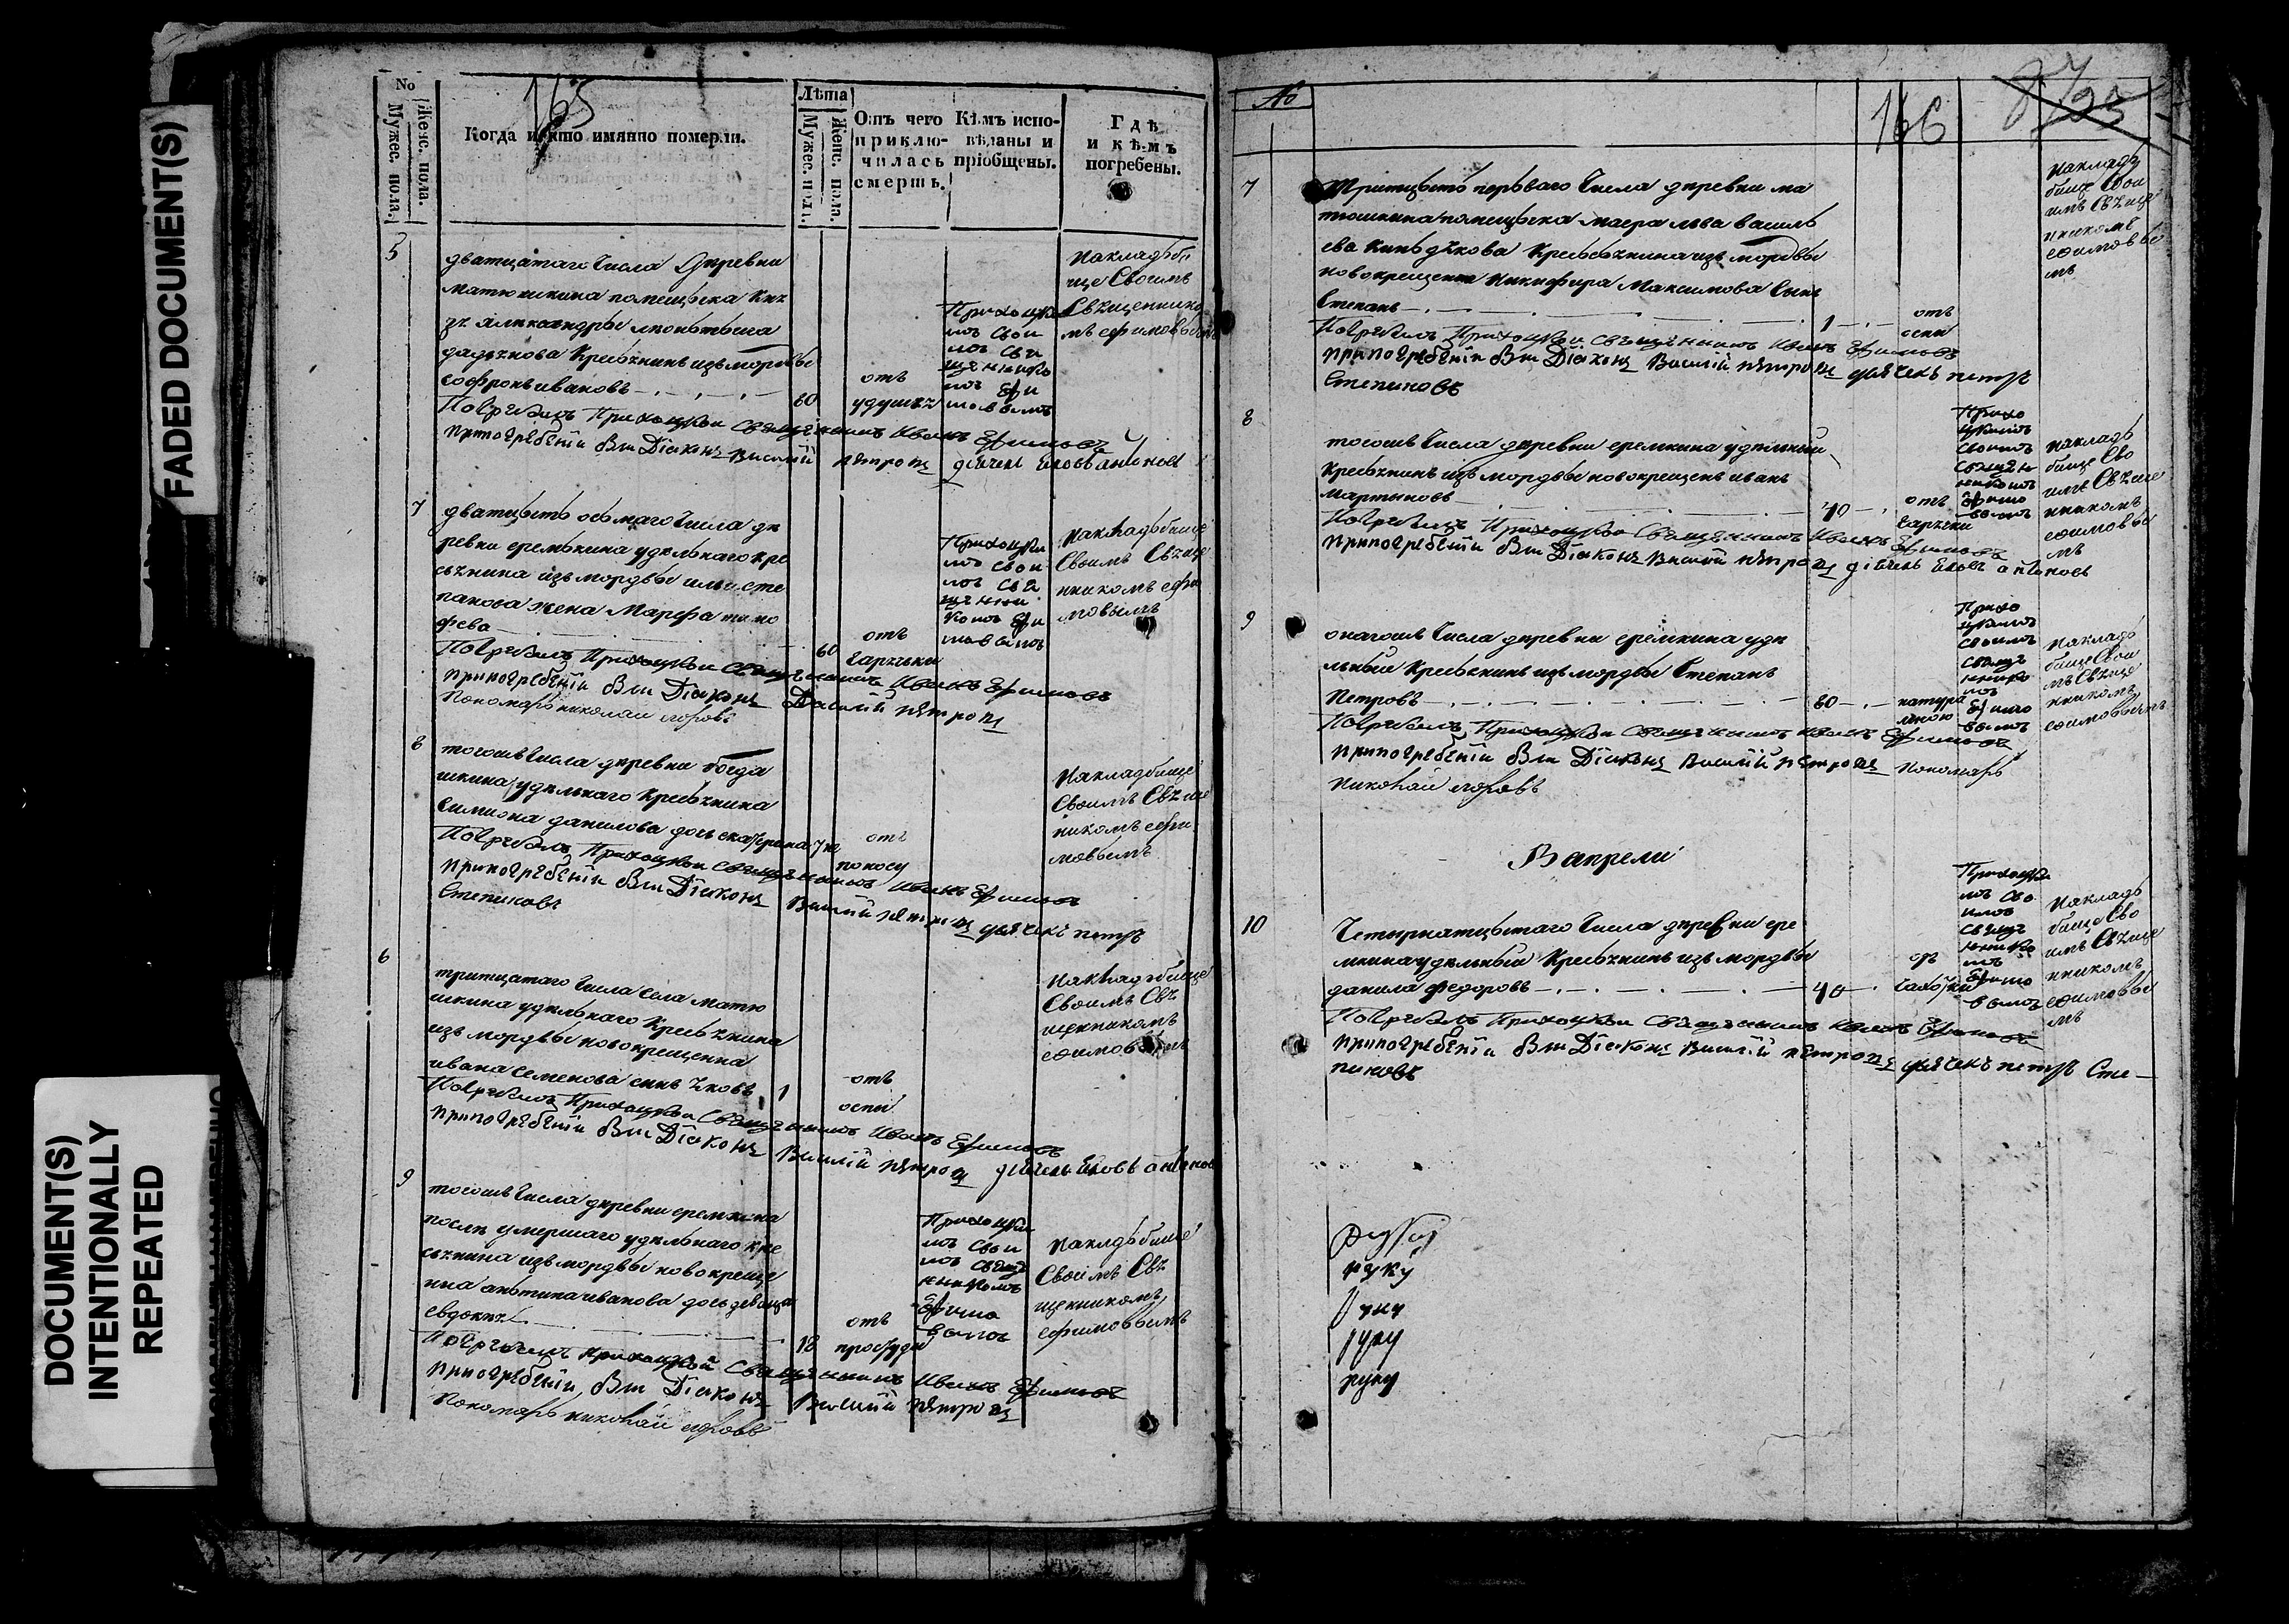 FADED DOCUMENT(S)
DOCUMENT(S)
INTENTIONALLY
REPEATED
165
No
Мужес. пола.
Женс. пола.
Когда и кто имянно померли.
Лѣта
Мужес. пол.
Женс. пола.
Отъ чего
приклю-
чилась
смерть.
Кѣмъ испо-
вѣданы и
пріобщены.
Гдѣ
и кѣмъ
погребены.
5
дватцатаго числа Деревни
матюшкина помещика кня
зя александры
Крестянинъ изъ мордвы
софронъ ивановъ
60
отъ
удушья
Приходски
мъ свои
мъ свя
щенико
мъ Ефи
мовымъ
накладби
ще Своимъ
Свѣщеннико
мъ ефимовым
Погребалъ Приходскои священникъ Иванъ Ефимовъ
припогребеніи были Діаконъ Василій петровъ дьячекъ Яковъ антоновъ
7
дватцать осьмаго числа де
ревни еремкина удѣльнаго кре
стянина изъ мордвы ильи сте
панова жена Марефа тимо
фева
60
отъ
гарячьки
Приходски
мъ свои
мъ свя
щенни
комъ Ефи
мовымъ
накладбище
Своимъ Свѣще
нникомъ ефи
мовымъ
Погребалъ Приходскои священникъ Иванъ Ефимовъ
припогребеніи были Діаконъ Василій петровъ
Пономарь николаи егоровъ
8
тогошъ числа деревни богда
шкина удельнаго Крестянина
Симиона данилова дочь екатерина
отъ
поносу
Накладбище
Своимъ Свѣще
никомъ ефи
мовымъ
Погребалъ Приходскои священникъ Иванъ Ефимовъ
припогребеніи были Діаконъ Василій петровъ дьячекъ петръ
Степановъ
6
тритцатаго числа Села матю
шкина удѣльнаго Крестянина
изъ мордвы новокрещенна
ивана семенова сынъ Яковъ
1
отъ
оспы
накладбище
Своимъ Свѣ
щенникомъ
ефимовымъ
Погребалъ Приходскои священникъ Иванъ Ефимовъ
припогребеніи были Діаконъ Василій петровъ дьячекъ Яковъ антонов
9
тогошъ числа деревни еремкина
послѣ умершаго удельнаго кре
стянина изъ мордвы новокреще
нна ивана дочь девица
евдокия
18
отъ
простуды
Приходски
мъ свои
мъ свящ
ннкомъ
Ефимо
вымъ
накладбище
Своимъ Свѣ
щенникомъ
ефимовымъ
Погребалъ Приходскои Священникъ Иванъ Ефимовъ
припогребеніи были Діаконъ Василій петровъ
Пономарь николаи егоровъ
No
166
7
Тритцать перваго числа деревни ма
тюшкина помещика маера льва василь
ева Крестянина изъ мордвы
новокрещенна Никифора Максимова Сынъ
Степанъ
1
отъ
оспы
накладъ
бище Свои
имъ Свѣще
нникомъ
ефимовы
мъ
Погребалъ Приходскои священникъ Иванъ Ефимовъ
припогребеніи были Діаконъ Василій петровъ дьячекъ петръ
Степановъ
8
тогошъ числа деревни еремкина удѣльныи
крестянинъ изъ мордвы новокрещенъ иванъ
мартыновъ
40
отъ
гарячки
Прихо
цкимъ
своимъ
священ
никомъ
Ефимо
вымъ
накладъ
бище Сво
имъ Свѣще
нникомъ
ефимовы
мъ
Погребалъ Приходскои священникъ Иванъ Ефимовъ
припогребеніи были Діаконъ Василій петровъ дьячекъ Яковъ антоновъ
9
онагошъ числа деревни еремкина уде
льныи Крестянинъ изъ мордвы Степанъ
Петровъ
80
натура
льною
Прихо
цкимъ
своимъ
свящ
ннико
мъ
Ефимо
вымъ
накладъ
бище Свои
мъ Свѣще
нникомъ
ефимовымъ
Погребалъ Приходскои священникъ Иванъ Ефимовъ
припогребеніи были Діаконъ Василій петровъ Пономарь
николаи егоровъ
В апрели
10
Четырнатцатаго числа деревни ере
мкина удѣльныи Крестянинъ изъ мордвы
данила федоровъ
40
отъ
Приходски
мъ сво
имъ
свящ
ннико
мъ
Ефимо
вымъ
накладъ
бище Сво
имъ Свѣще
нникомъ
ефимовы
мъ
Погребалъ Приходскои священникъ Иванъ Ефимовъ
припогребеніи были Діаконъ Василій петровъ дьячекъ петръ Сте-
пановъ
руку
руку
руку